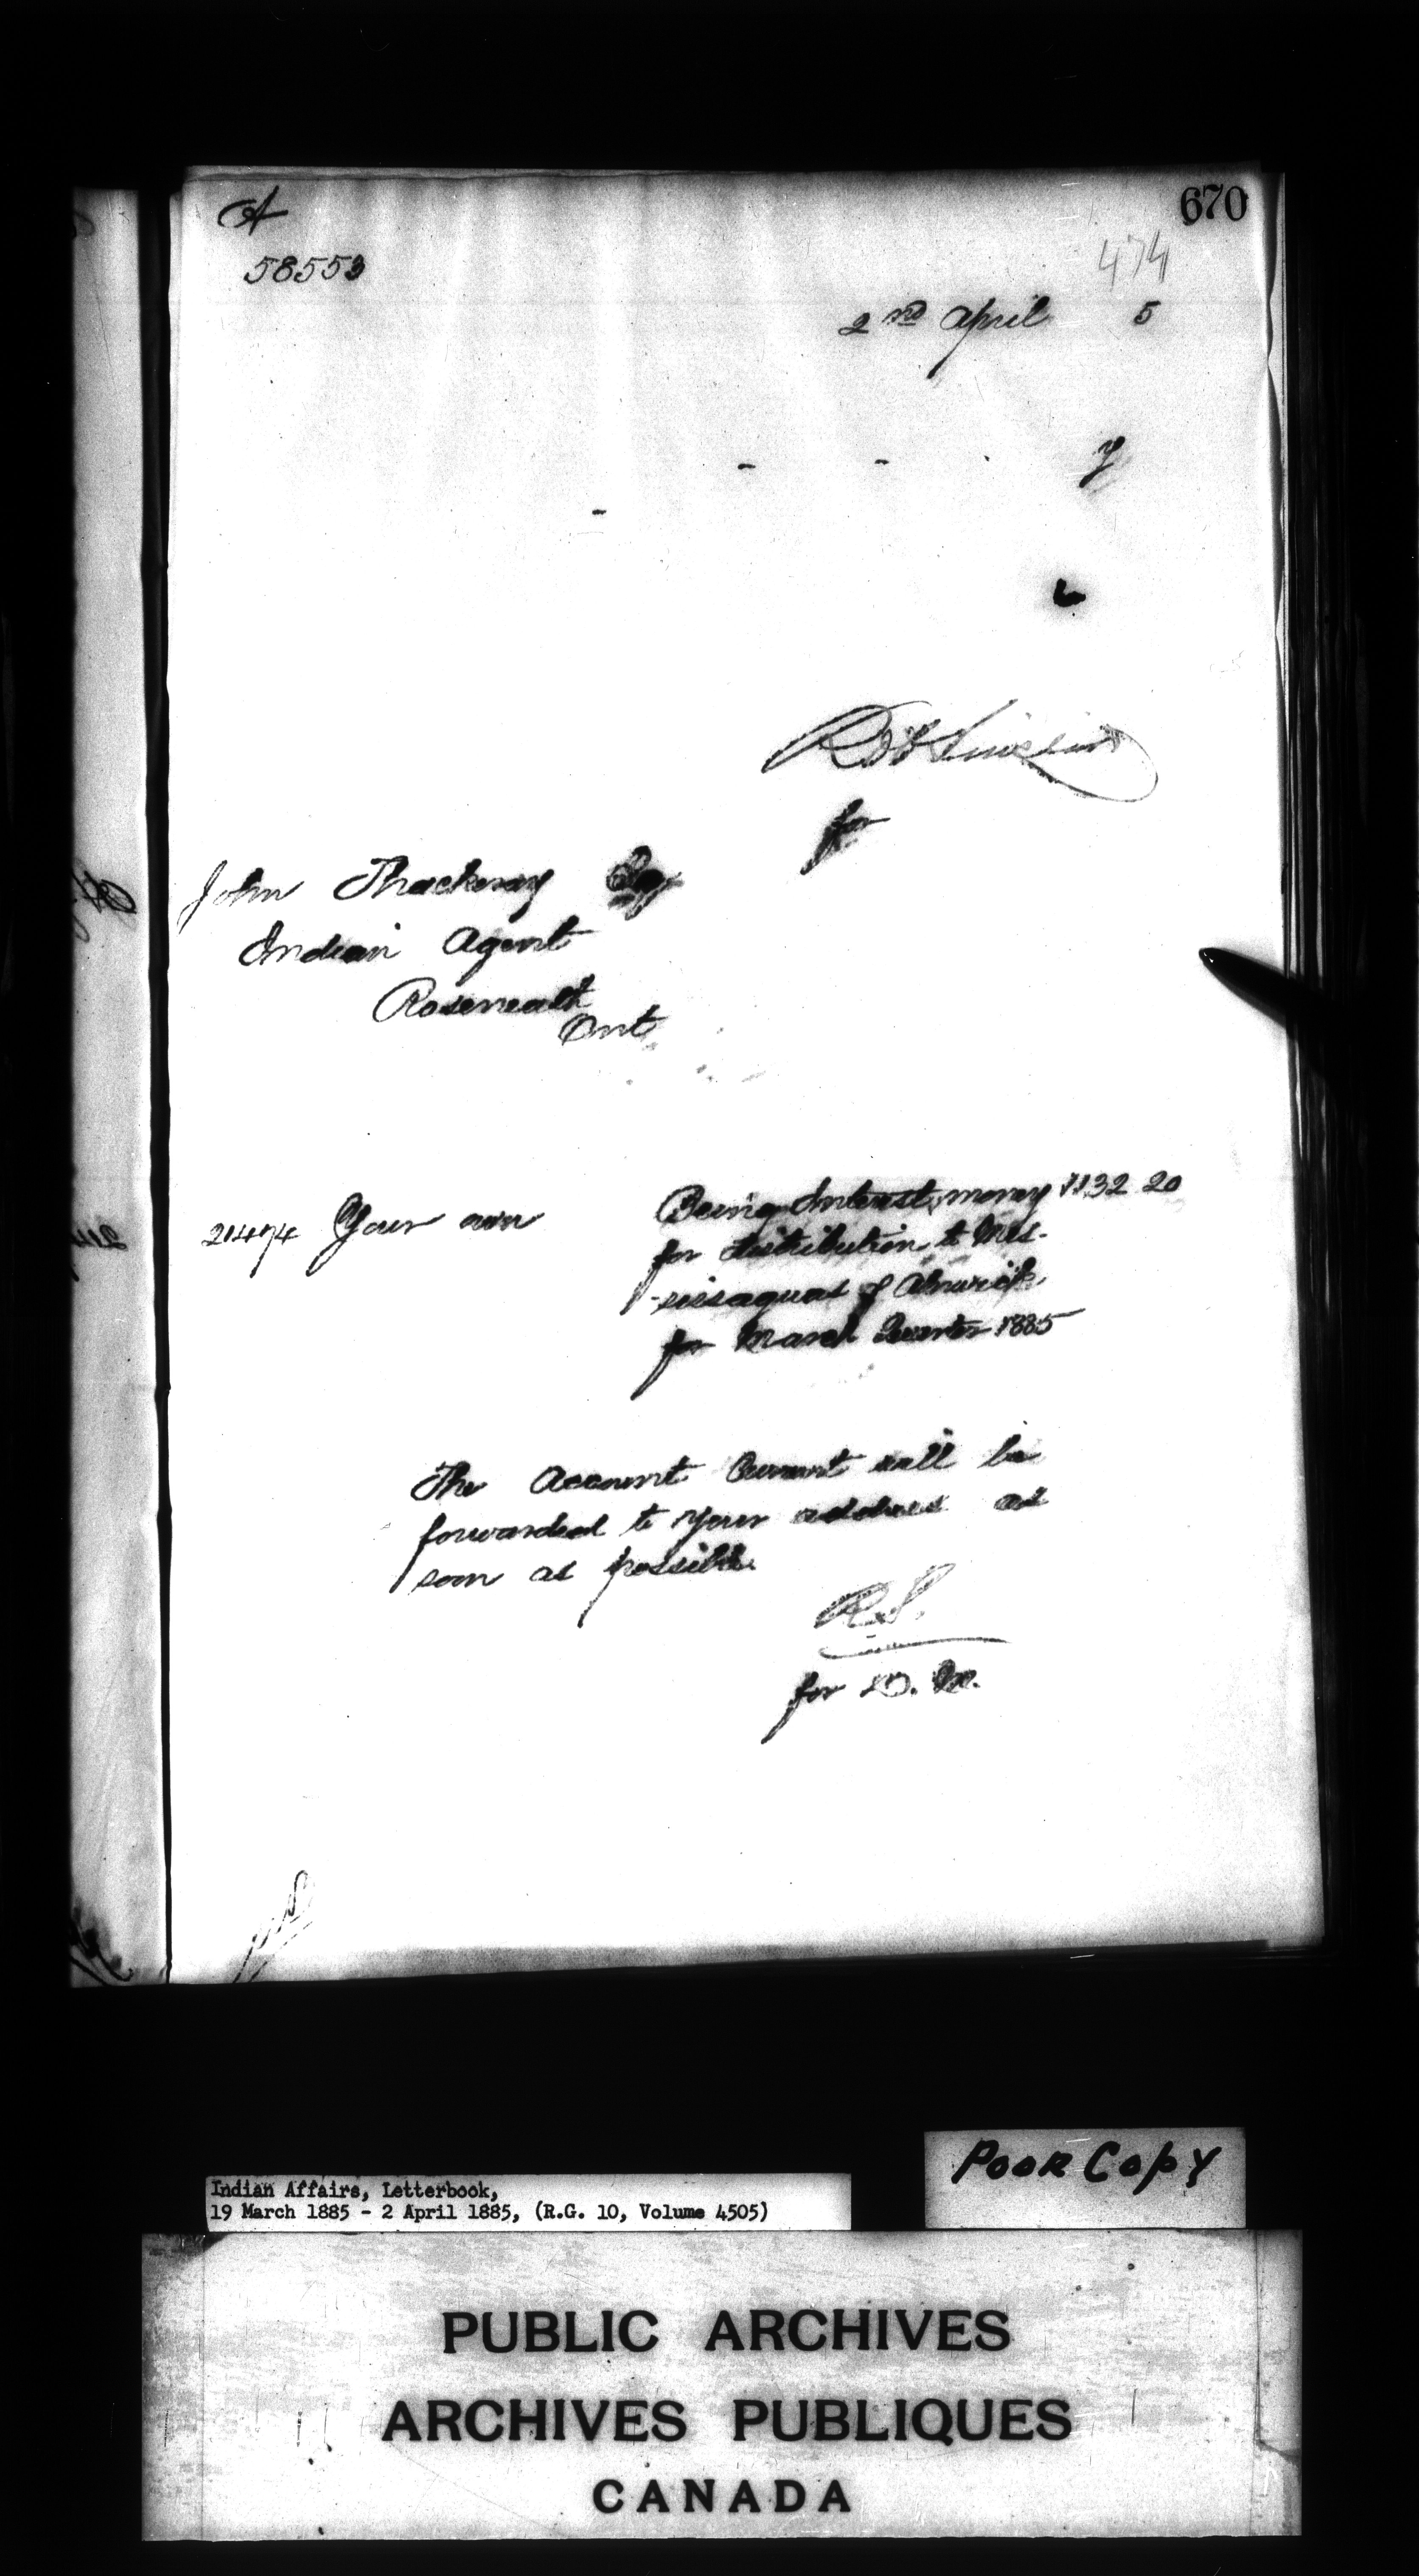 A
670
58553
474
2nd April 5
y
for
John Thackeray Esq
Indian Agent
Roseneath
Ont
21474 Your own Being Interest money 1132 20
for distribution to Mis-
-sissaguas of Alnwick
for March Quarter 1885
The Account Current will be
forwarded to your address as
soon as possible.
R.S.
for D. M.
Poor Copy
Indian Affairs, Letterbook,
19 March 1885 - 2 April 1885, (R.G. 10, Volume 4505)
PUBLIC ARCHIVES
ARCHIVES PUBLIQUES
CANADA